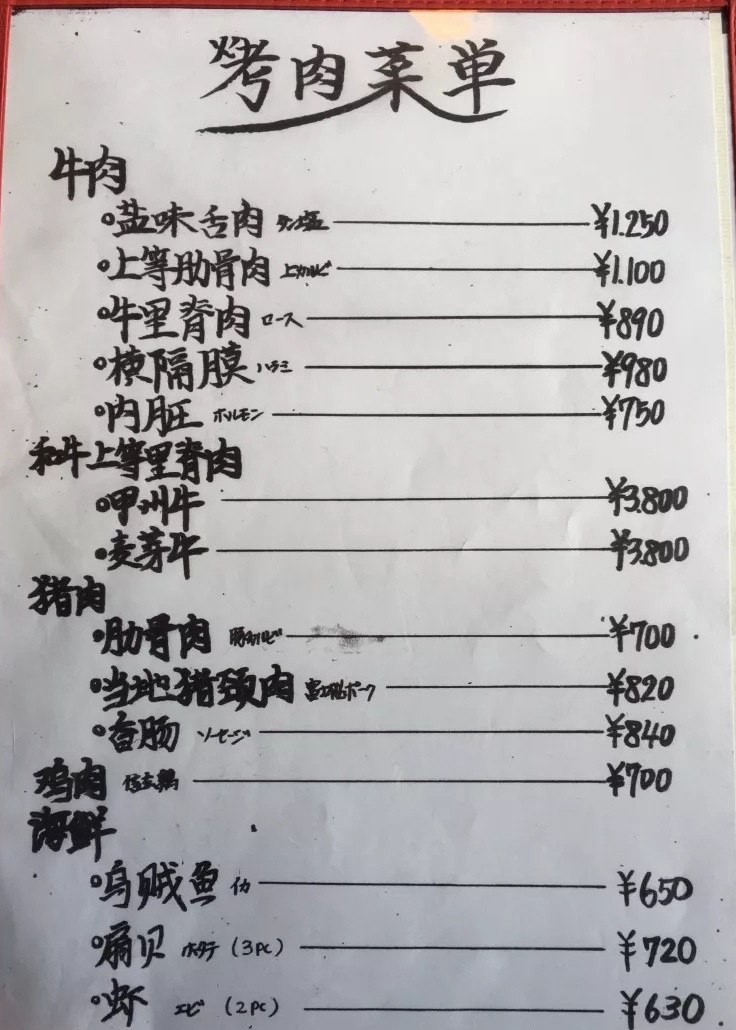 烤肉菜単
牛肉
盐味舌肉 タン塩 ¥1.250
上等肋骨肉 上カルビ ¥1.100
牛里脊肉 ロース ¥890
横隔膜 ハラミ ¥980
内脏 ホルモン ¥750
和牛上等里脊肉
甲州牛 ¥3.800
麦芽牛 ¥3.800
猪肉
肋骨肉 豚カルビ ¥700
当地猪颈肉 ¥820
香肠 ソーセージ ¥840
鸡肉 信玄鶏 ¥700
海鲜
乌贼鱼 イカ ¥650
扇贝 ホタテ (3PC) ¥720
虾 エビ (2PC) ¥630